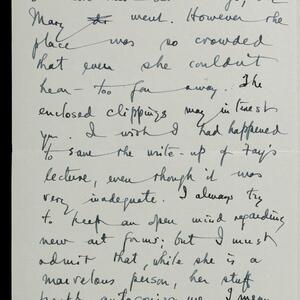 Mary went. However the
place was so crowded
that even she couldn't
hear – too far away. The
enclosed clippings may interest
you. I wish I had happened
to save the write-up of Fay's
lecture, even though it was
very inadequate. I always try
to keep an open mind regarding
new art forms; but I must
admit that, while she is a
marvelous person, her stuff